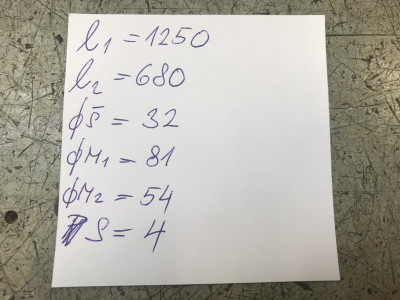 l1 = 1250
l2 = 680
ϕS̄ = 32
ϕM1 = 81
ϕM2 = 54
S = 4